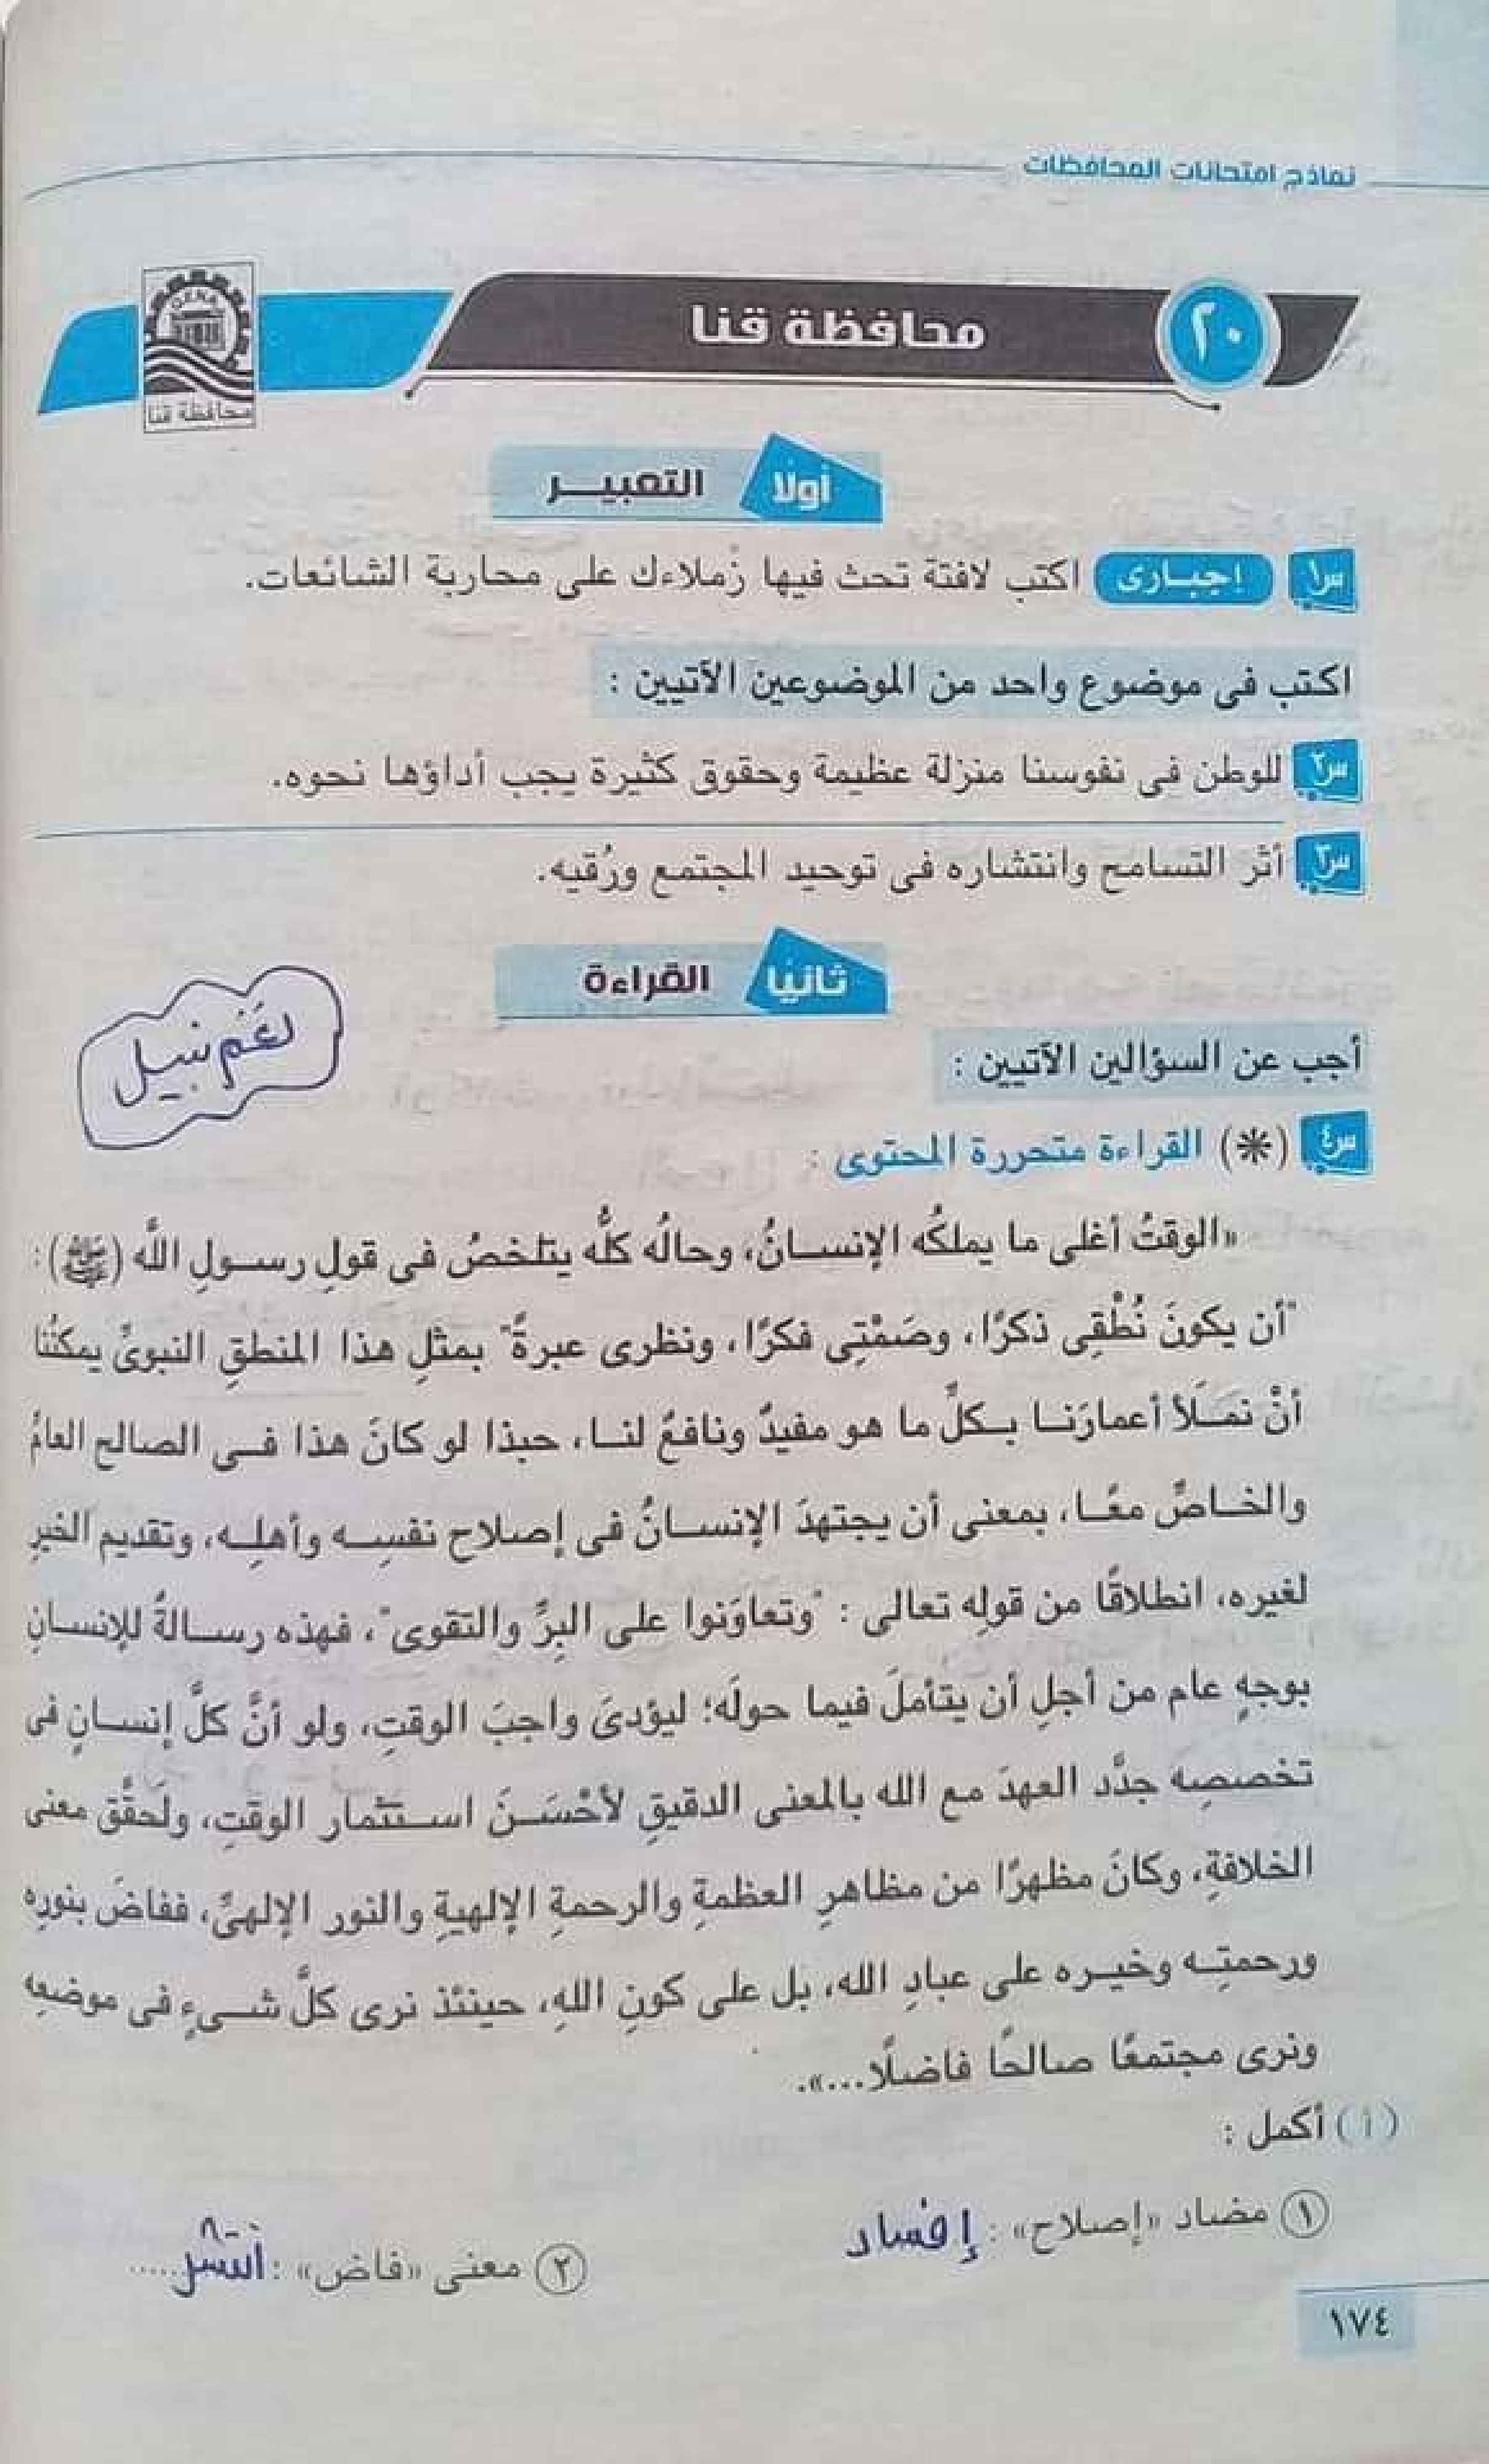 نماذج امتحانات المحافظات
٢٠ محافظة قنا
QENA
محافظة قنا
أولًا التعبيــر
س١ إجبـارى اكتب لافتة تحث فيها زُملاءك على محاربة الشائعات.
اكتب فى موضوع واحد من الموضوعين الآتيين :
س٢ للوطن فى نفوسنا منزلة عظيمة وحقوق كثيرة يجب أداؤها نحوه.
س٣ أثر التسامح وانتشاره فى توحيد المجتمع ورُقيه.
ثانيًا القراءة
نَغَم نبيل
أجب عن السؤالين الآتيين :
س٤ (*) القراءة متحررة المحتوى :
«الوقتُ أغلى ما يملكُه الإنسـانُ، وحالُه كلُّه يتلخصُ فى قولِ رسـولِ اللَّه (ﷺ):
"أن يكونَ نُطْقِى ذكرًا، وصَمْتِى فكرًا، ونظرى عبرةً" بمثلِ هذا المنطقِ النبوىِّ يمكنُنا
أنْ نمـلَأ أعمارَنـا بـكلِّ ما هو مفيدٌ ونافعٌ لنـا، حبذا لو كانَ هذا فـى الصالح العامِّ
والخـاصِّ معًـا، بمعنى أن يجتهدَ الإنسـانُ فى إصلاح نفسِـه وأهلِـه، وتقديم الخيرِ
لغيره، انطلاقًا من قولِه تعالى : "وتعاوَنوا على البِرِّ والتقوى"، فهذه رسـالةٌ للإنسـانِ
بوجهٍ عام من أجلِ أن يتأملَ فيما حولَه؛ ليؤدىَ واجبَ الوقتِ، ولو أنَّ كلَّ إنسـانٍ فى
تخصصِه جدَّد العهدَ مع الله بالمعنى الدقيقِ لأحْسَـنَ اسـتثمار الوقتِ، ولَحقَّق معنى
الخلافةِ، وكانَ مظهرًا من مظاهرِ العظمةِ والرحمةِ الإلهيةِ والنور الإلهىِّ، ففاضَ بنورِه
ورحمتِـه وخيـره على عبادِ الله، بل على كونِ اللهِ، حينئذ نرى كلَّ شـىءٍ فى موضعِه
ونرى مجتمعًا صالحًا فاضلًا...».
(أ) أكمل :
① مضاد «إصلاح» : إفساد
② معنى «فاض» : انتشر .....
١٧٤